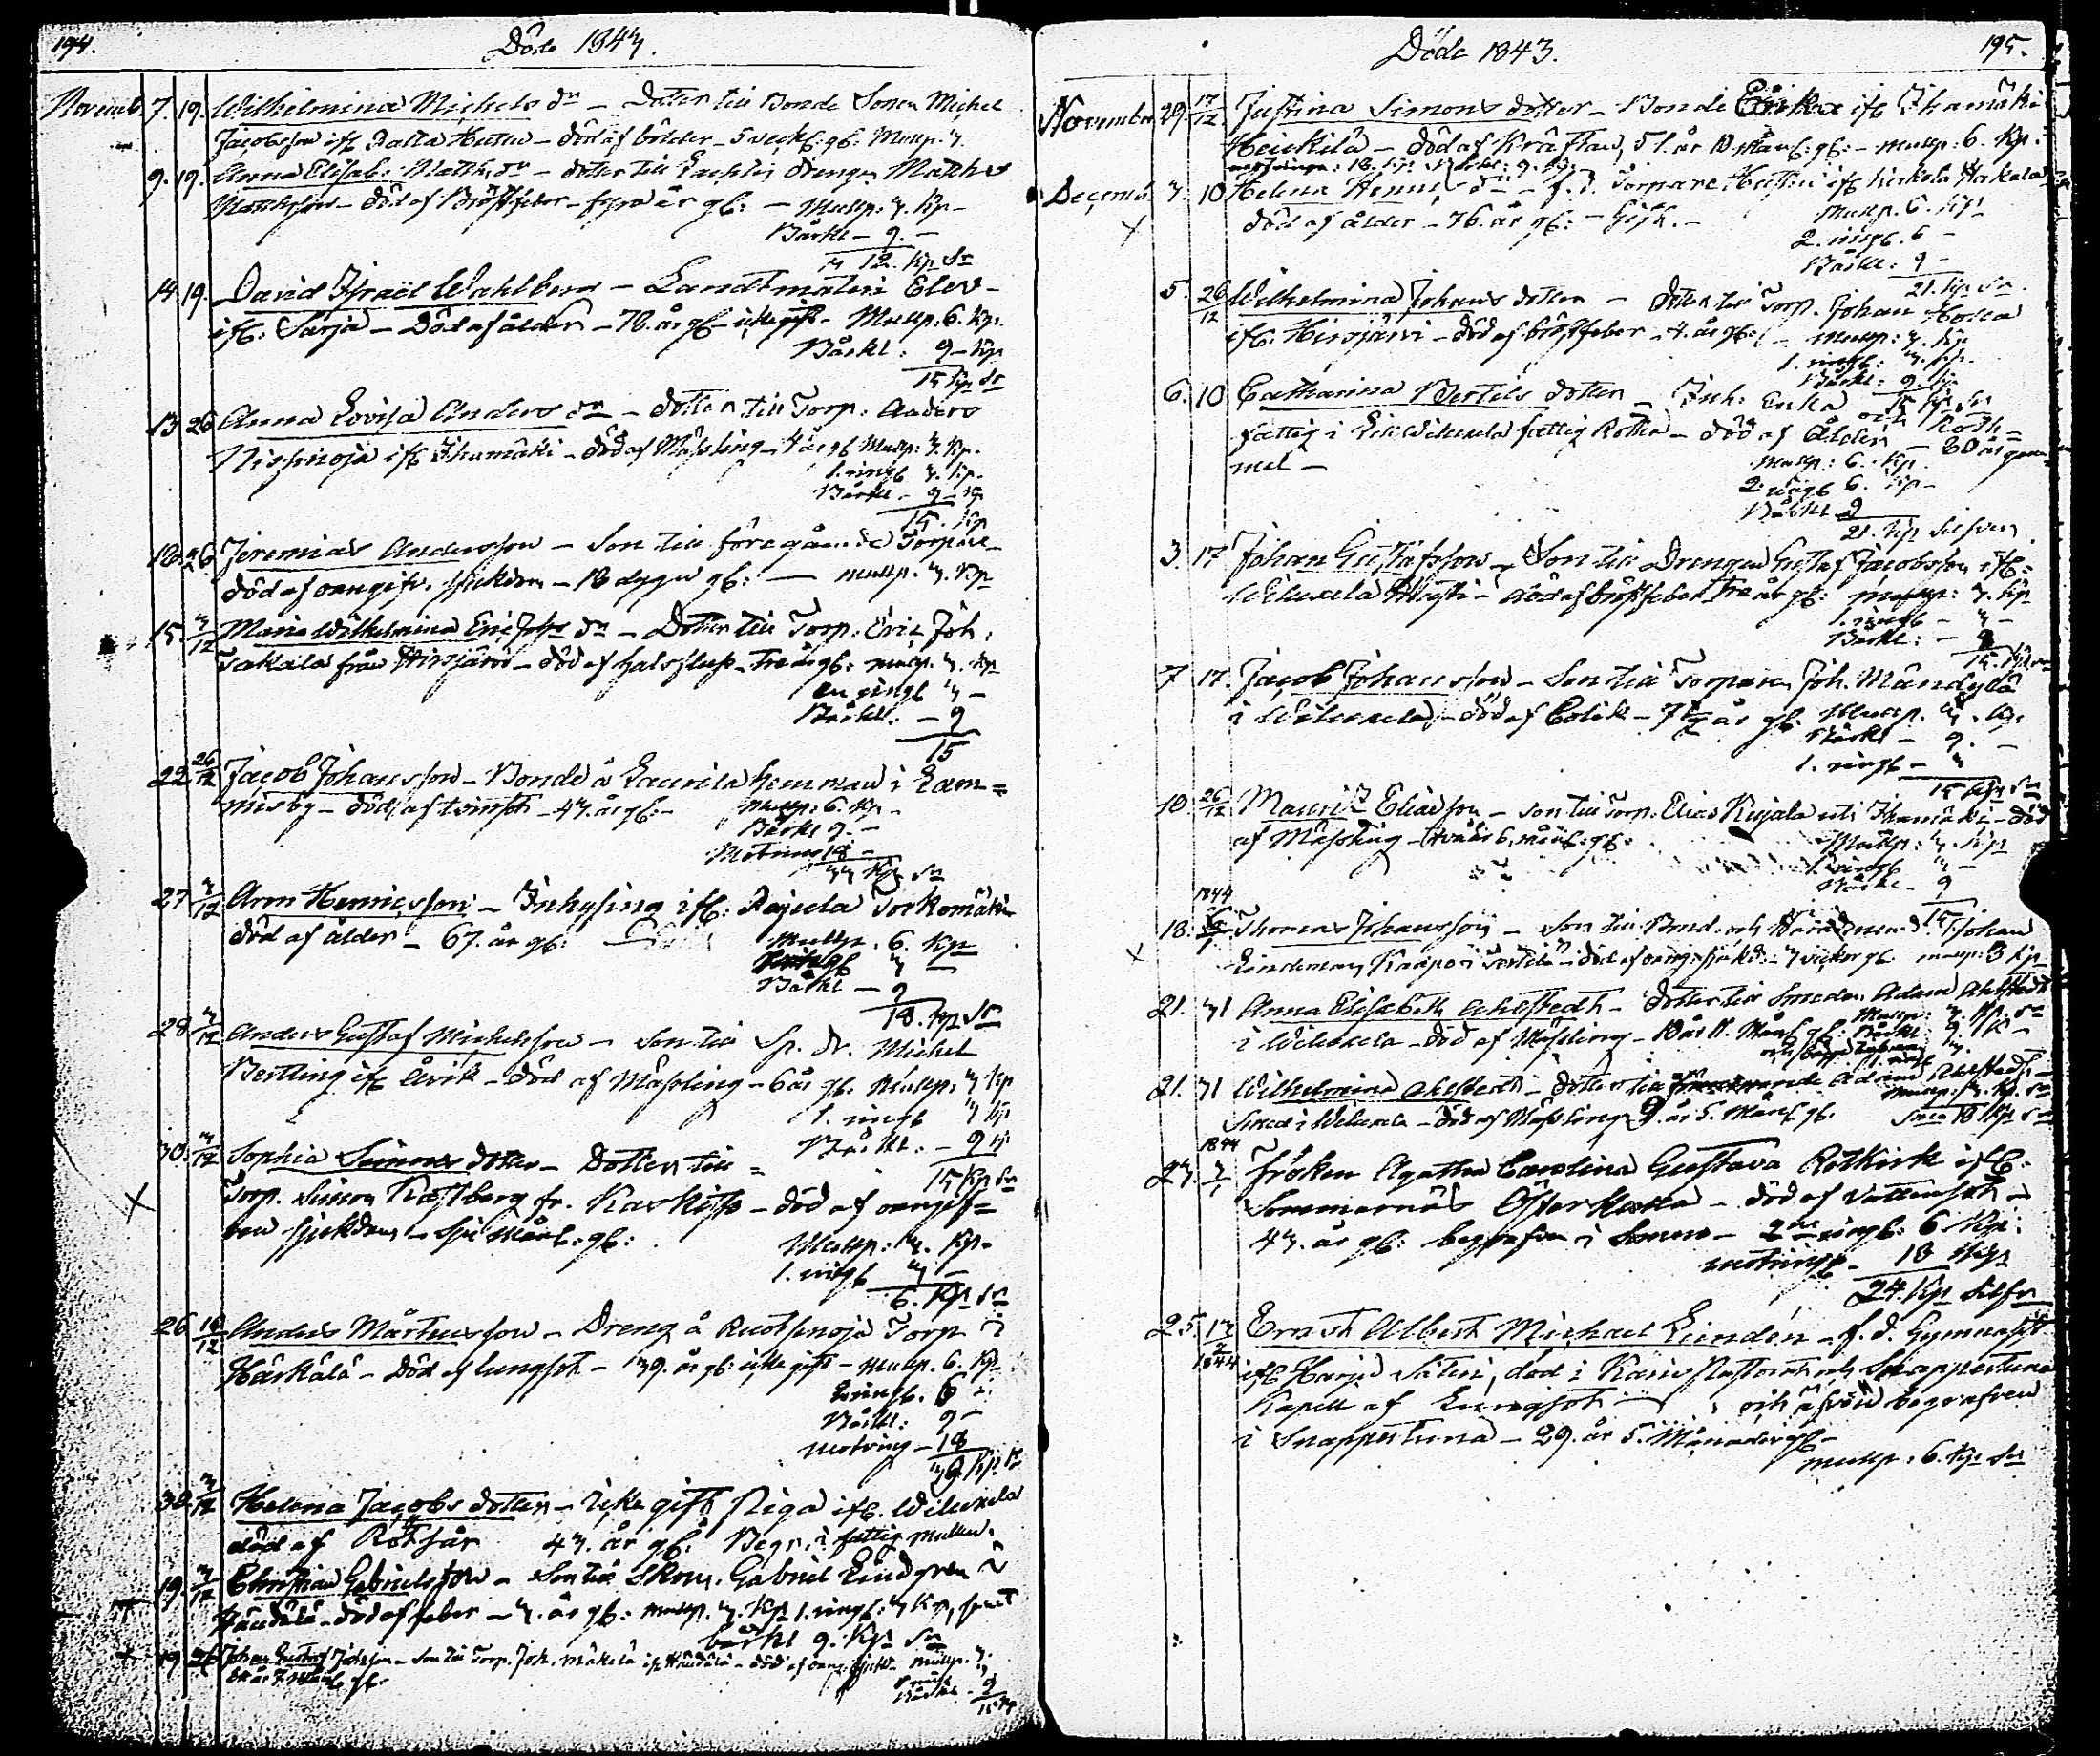 194. Döde 1843.
Novemb. 7. 19. Wilhelmina Michels dr – Dotter till Bonde Sonen Michel
Jacobsson ifr. – död af bölder – 5 veck: gl: Mullp. 3.
9. 19. Anna Elisab: Matthsdr – dotter till drengen Matths
Matthsson – död af Bröstfeber – fyra år gl: – Mullp: 3. Kp –
Bårkl – 9. –
12. Kp Sr
14 19. David Israël Wahlberg – Landtmäteri Elev –
ifr: Sarja – Död af ålder – 76. år gl – icke gift – Mullp: 6. Kp.
Bårkl: 9 – Kp
15 Kp Sr
13 26 Anna Lovisa Anders dr – dotter till Torp: Anders
ifr Ihamäki – död af Mässling – 4 år gl Mullp: 3. Kp.
1. ringl 3. Kp.
Bårkl – 9 – Kp
15. Kp
18. 26 Jeremias Andersson – Son till föregående Torpare –
död af oangifv. sjukdom – 18 dygn gl: — mullp. 3. Kp
15 3/12 Maria Wilhelmina Eric Johs dr – Dotter till Torp: Eric Joh:
Takala från Hirsjärvi – död af halsfluss – Tre år gl: mullp. 3. Kp
en ringl 3 –
Bårkl: – 9
15
22 26/12 Jacob Johansson – Bonde å Laurila hemman i Lam=
misby – död af tvinsot – 43. år gl: – Mullp: 6. Kp –
Bårkl 9. –
Motring 18 –
33 Kp Sr
27 3/12 Arm Henricsson – Inhysing ifr: Torkomäki
död af ålder – 67. år gl: Mullp. 6. Kp
ringl 3 –
Bårkl – 9
18. Kp Sr
28 3/12 Anders Gustaf Michelsson – Son till Sp. Dr. Michel
Bertling ifr Åvik – Död af Mässling – 6 år gl. Mullp: 3 Kp
1. ringl 3 Kp
Bårkl. – 9 Kp
15 Kp Sr
30. 3/12 Sophia Simons dotter – Dotter till =
Torp. Simon Kastberg fr. – död af oangif=
ven sjukdom – sju Mån: gl:
Mullp: 3. Kp.
1. ringl 3 –
6. Kp Sr
26 10/12 Anders Mårtensson – Dreng å Torp i
Härkälä – Död af lungsot – 39. år gl: icke gift – Mullp. 6. Kp
2 ringl. 6 –
Bårkl: 9 –
Motring – 18
39. Kp Sr
30. 3/12 Helena Jacobs dotter – icke gift Piga ifr. Wiluxela
död af Rötsår 43. år gl: Begr. i fattig mullen.
19. 3/12 Christian Gabrielsson – Son till Skom. Gabriel Lindgren i
Händälä – död af feber – 3. år gl: mullp. 3. Kp 1. ringl: 3 Kp, samt
bårkl 9. Kp Sr
19 26 Johan Gustaf Johsson – Son till Torp. Joh. Mäkelä ifr Händälä – död af oang. sjukd. – mullp. 3.
år 7. Mån gl. 1 ringl 3
Bårkl – 9
15 Kp
Döde 1843. 195.
November 29. 17/12 Justina Simons dotter – Bonde Enka ifr Ihamäki
Heikkilä – död af Kräftan, 51. år 10. Mån: gl: – mullp: 6. Kp.
motringn: 18. Kp. Bårkl: 9. Kp.
Decemb. 3. 10 Helena dr – f. d. Torpare
död af ålder – 76. år gl: – Gift. – Mullp. 6. Kp
2. ringl. 6 –
Bårkl: 9 –
21. Kp Sr.
5. 26/12 Wilhelmina Johans dotter – dotter till Torp. Johan
ifr: Hirsjärvi – död af bröstfeber – 4. år gl: – Mullp: 3. Kp
1. ringl: 3. Kp.
Bårkl: 9. Kp
15 Kp Sr
6. 10 Catharina Bertils dotter – Inh: Enka och Roth=
fattig i Wiluxela fattig Rothe – död af Ålder – 80 år gam=
mal – Mullp: 6. Kp.
2 ringl 6. Kp –
Bårkl 9
21. Kp Silfver
3. 17 Johan Gustafsson – Son till Drengen Gustaf Jacobsson ifr=
Wiluxela – död af bröstfeber Tre år gl: mullp: 3. Kp
1. ringl – 3 –
Bårkl: – 9
15. Kp Sr
7 17. Jacob Johansson – Son till Torparen Joh. Mändylä
i Wiluxela – död af Colik – 7 1/2 år gl. Mullp. 3. Kp.
Bårkl – 9. –
1. ringl – 3
15 Kp Sr
10. 26/12 Maurits Eliasson – son till Torp: Elias Kujala uti Ihamäki – död
af Mässling – två år 6. mån: gl: Mullp: 3. Kp
1. ringl 3 –
Bårkl – 9
15.
1844
18. 6/1 Thomas Johansson – Son till Bond. och Nämndem. Johan
Lindeman – död af oang. sjukd. – 3 veckor gl. mullp: 3 Kp
21. 31 Anna Elisabeth Ahlstedt – Dotter till Smeden Adam Ahlstedt
i Wiluxela – död af Mässling – 10 år 11. Mån gl: Mullp: 3. Kp. Sr
Bårkl: 9. K –
21. 31 Wilhelmina Ahlstedt – dotter till Adam Ahlstedt –
Smed i Wiluxela – död af Mässling 9. år 5. Mån gl. Mullp: 3. Kp. Sr
Sma 18 Kp Sr
1844
23. 7/1 Fröken Agatha Carolina Gustava Rotkirk ifr.
Sommarnäs – död af Vattusot –
43. år gl: begrafven i Somero – 2ne ringl: 6 Kp:
motringl – 18 Kp
24. Kp Silfr
25. 13/2 1844 Ernst Albert Michael Lindén – f. d. Gymnasist
ifr Harju Säteri, död i Karis Pastorat och Snappertuna
Kapell af Lungsot — och äfven begrafven
i Snappertuna – 29. år 5. Månader gl –
mullp: 6. Kp Sr